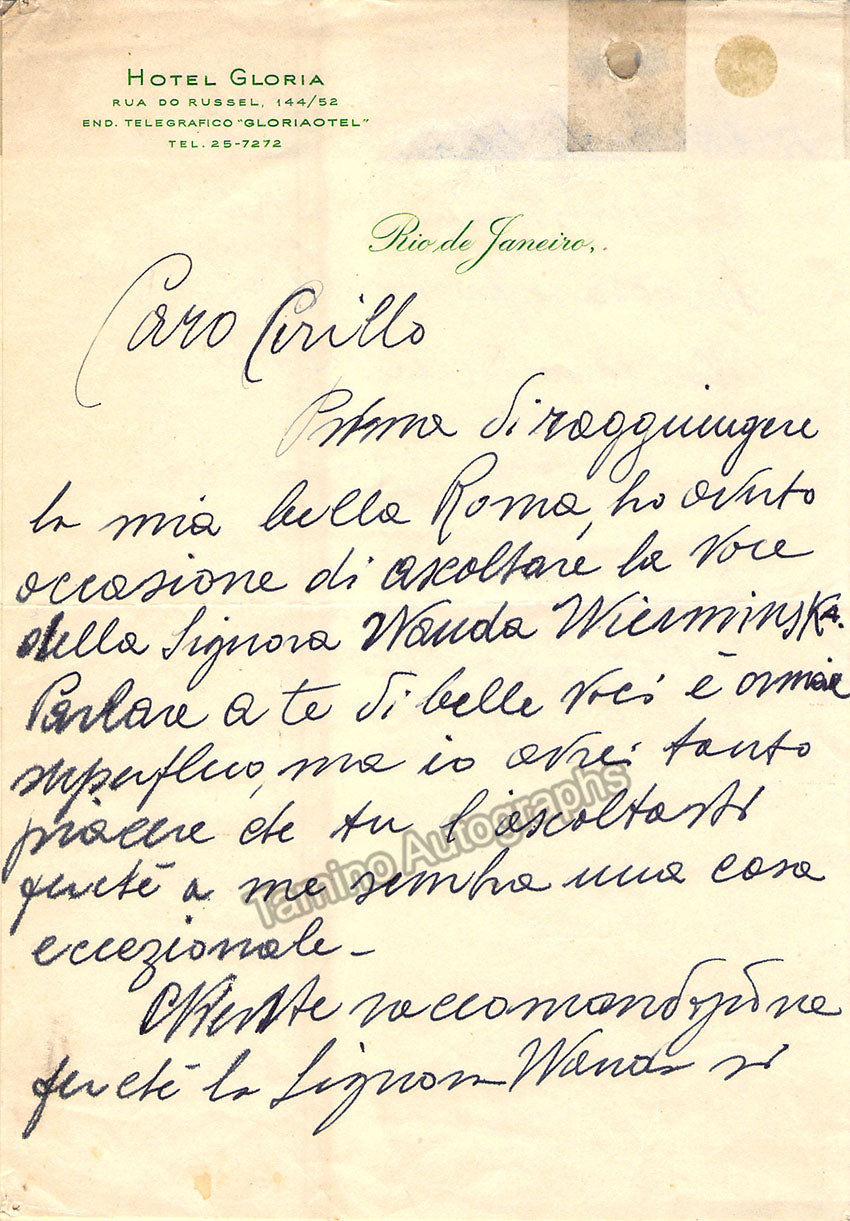 HOTEL GLORIA
RUA DO RUSSEL, 144/52
END. TELEGRAFICO "GLORIAOTEL"
TEL. 25-7272
Rio de Janeiro,
Caro Cirillo
Prima di raggiungere
la mia bella Roma, ho avuto
occasione di ascoltare la voce
della Signora Wanda Wierminska.
Parlare a te di belle voci è ormai
superfluo, ma io avrei tanto
piacere che tu l'ascoltasti
perché a me sembra una cosa
eccezionale -
Niente raccomandazione
perché la Signora Wanda si
Tamino Autographs